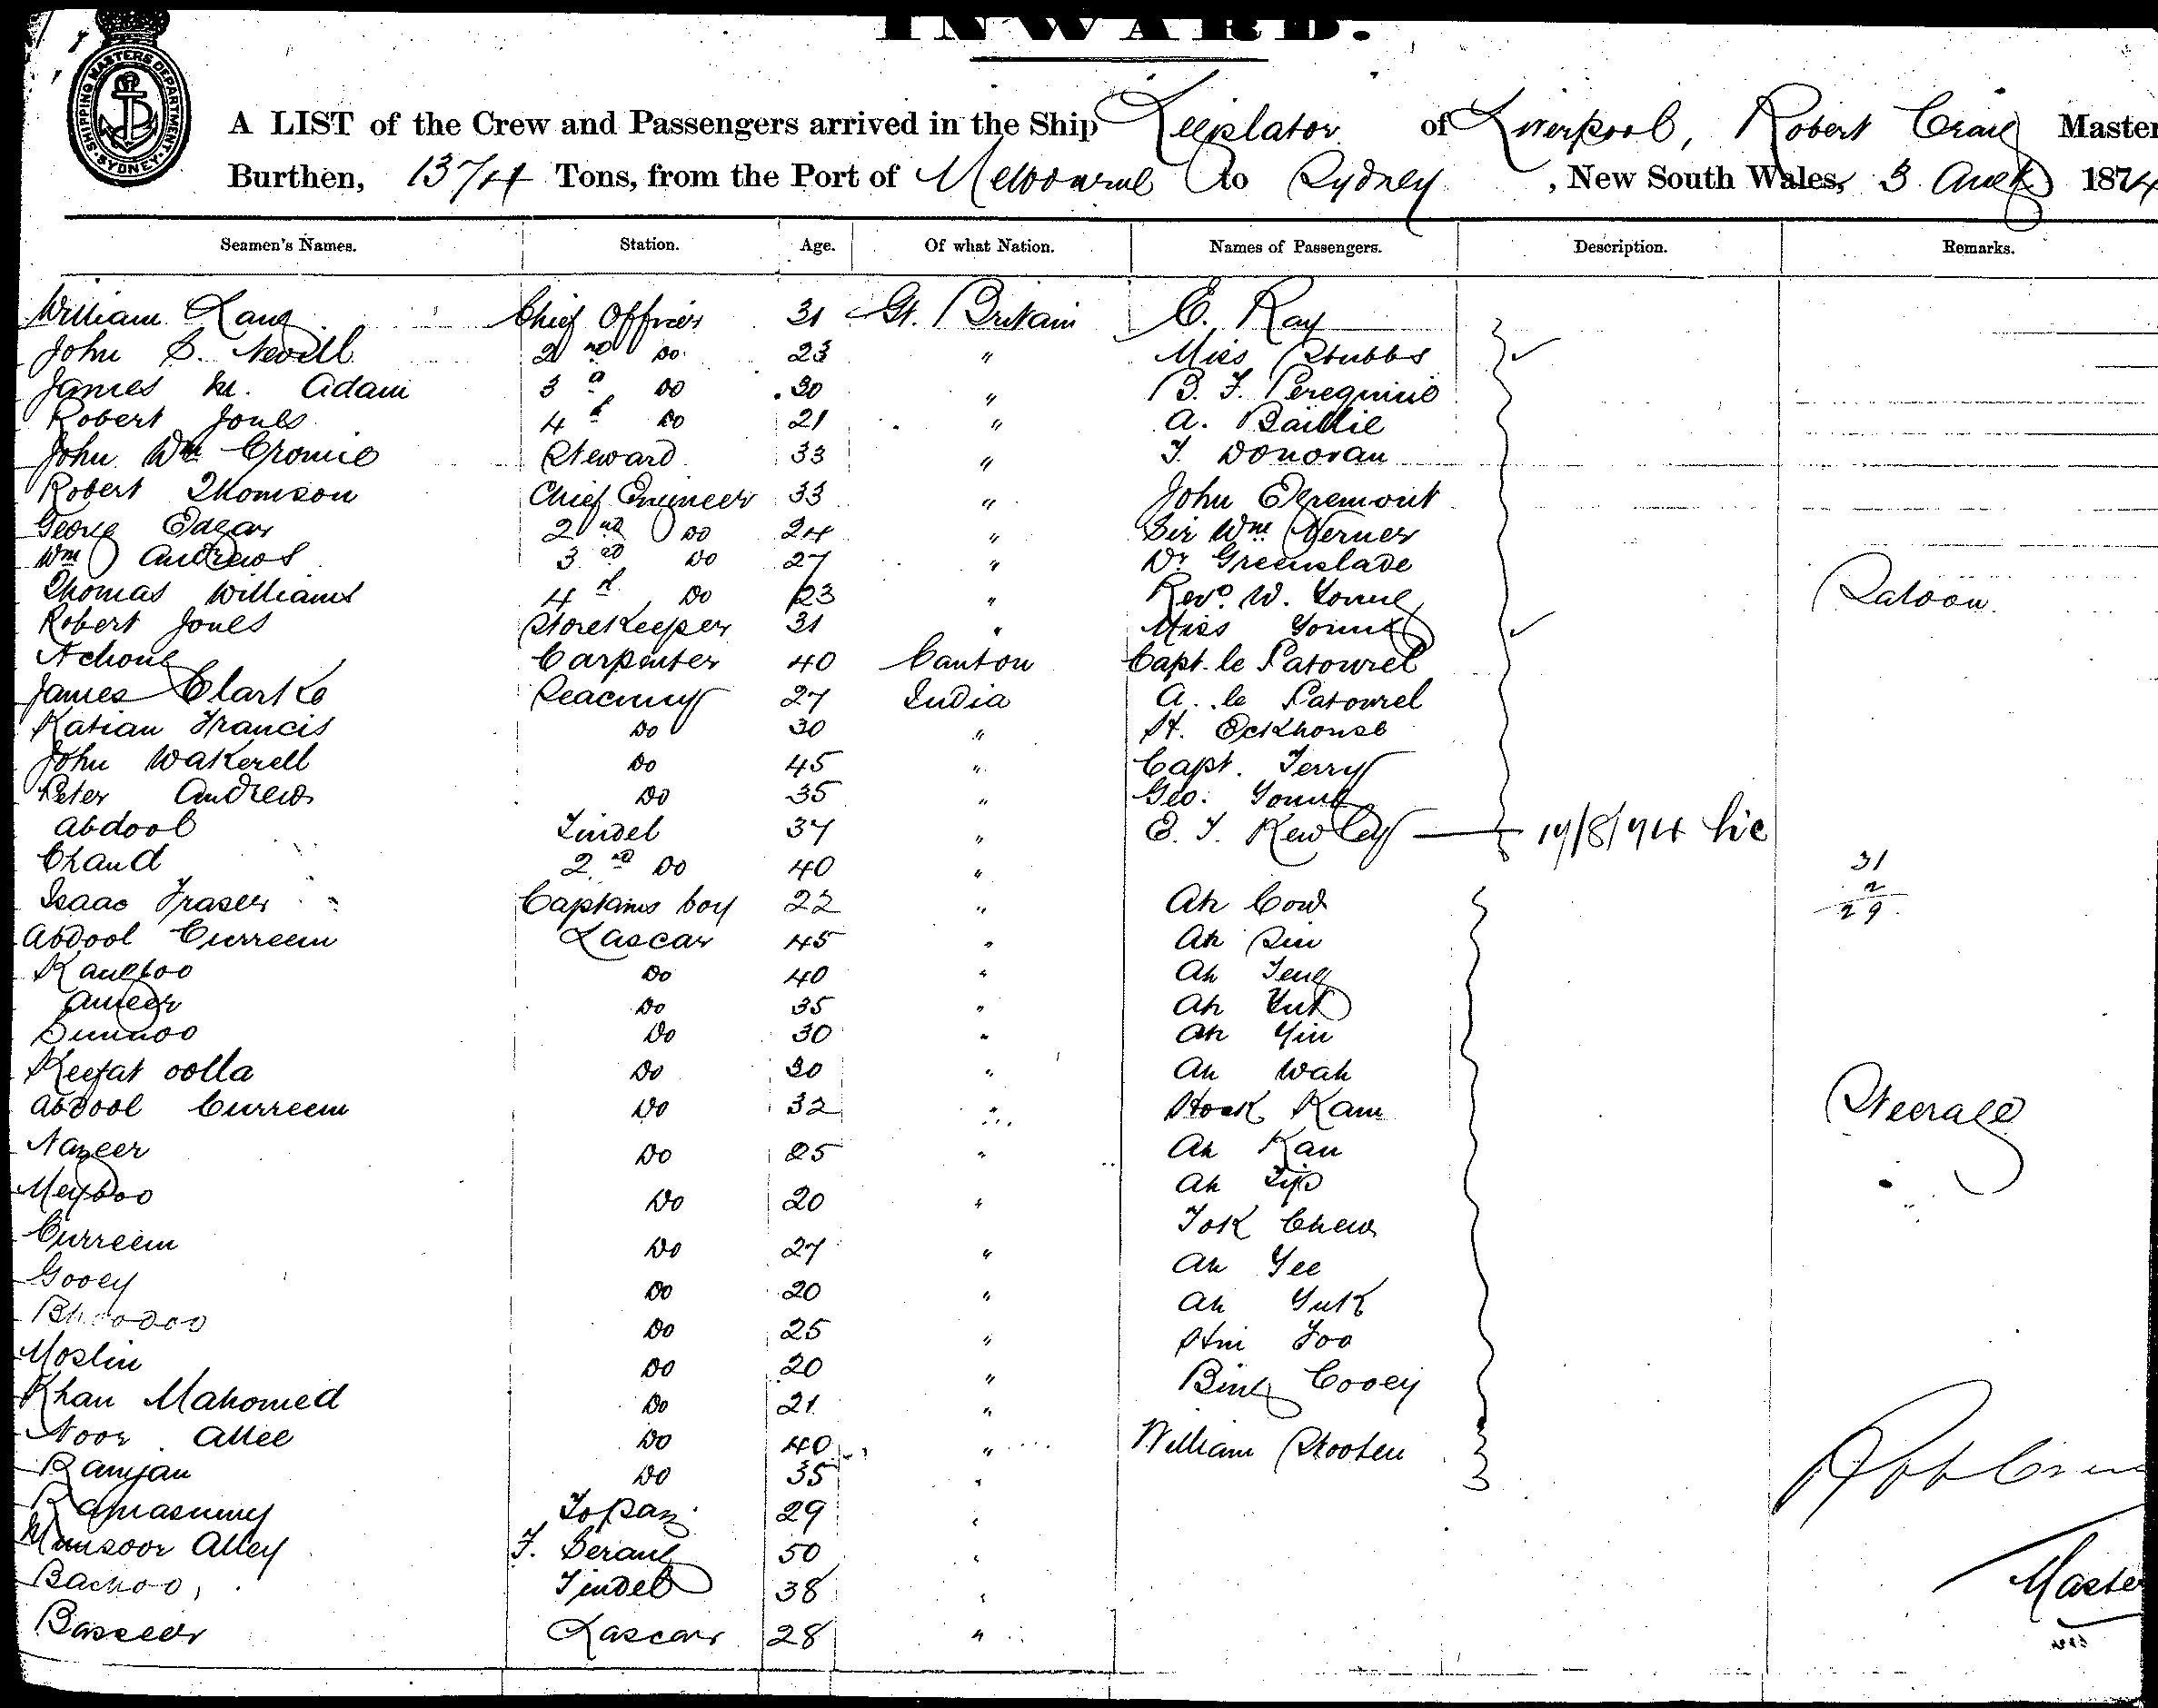 INWARD.
SHIPPING MASTERS DEPARTMENT SYDNEY
A LIST of the Crew and Passengers arrived in the Ship of Liverpool, Robert Craig Master
Burthen, 1374 Tons, from the Port of Melbourne to Sydney, New South Wales, 3 Augt 1874
Seamen's Names. Station. Age. Of what Nation. Names of Passengers. Description. Remarks.
William Lang Chief Officer 31 Gt. Britain E. Ray
John S. Nevill 2nd Do 23 " Miss Stubbs
James M. Adam 3d Do 30 " B. F. Peregrine
Robert Jones 4th Do 21 " A. Baillie
John Wm Cromie Steward 33 " T. Donovan
Robert Thomson Chief Engineer 33 " John Egremont
George Edgar 2nd Do 24 " Sir Wm Verner
Wm Andrews 3rd Do 27 " Dr Greenslade
Thomas Williams 4th Do 23 " Revd. W. Young Saloon
Robert Jones Storekeeper 31 " Miss Young
Achong Carpenter 40 Canton Capt. le Patourel
James Clarke Seacunny 27 India A. le Patourel
Katian Francis Do 30 " H. Eckhouse
John Wakerell Do 45 " Capt. Terry
Peter Andrew Do 35 " Geo. Young
Abdool Tindel 37 " E. T. Kewley 17/8/74
Chand 2nd Do 40 " 31
Isaac Fraser Captains boy 22 " Ah Cow 2
29
Abdool Curreem Lascar 45 " Ah Sin
Kangloo Do 40 " Ah Teng
Ameer Do 35 " Ah
Dunnoo Do 30 " Ah Yin
Keefat oolla Do 30 " Ah Wah
Abdool Curreem Do 32 " Hock Kam Steerage
Nazeer Do 25 " Ah Kan
Do 20 " Ah
Curreem Do 27 " Tok Chew
Gooey Do 20 " Ah Yee
Do 25 " Ah Yuk
Moslin Do 20 " Him Foo
Khan Mahomed Do 21 " Bing Cooey
Noor Allee Do 40 " William Stooten
Ramjan Do 35 "
Ramasumy Topaz 29 "
Munsoor Alley F. Serang 50 "
Bachoo Tindel 38 " Master
Basseer Lascar 28 "